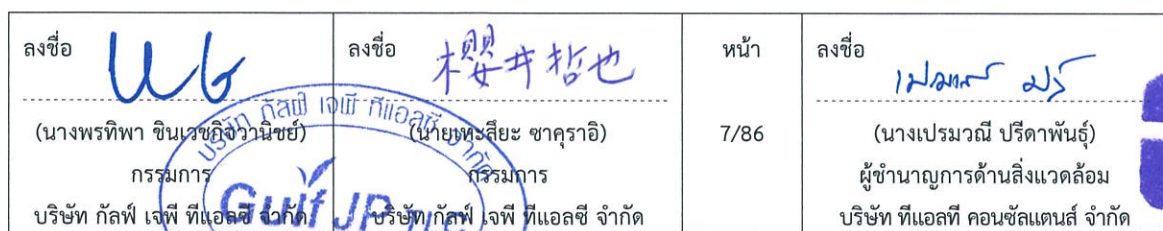 ลงชื่อ
櫻井哲也
(นางพรทิพา ชินเวชกิจวานิชย์)
กรรมการ
บริษัท กัลฟ์ เจพี ทีแอลซี จำกัด
ลงชื่อ
(นายเทะสึยะ ซาคุราอิ)
กรรมการ
บริษัท กัลฟ์ เจพี ทีแอลซี จำกัด
หน้า
7/86
ลงชื่อ
(นางเปรมวณี ปรีดาพันธุ์)
ผู้ชำนาญการด้านสิ่งแวดล้อม
บริษัท ทีแอลที คอนซัลแตนส์ จำกัด
บริษัท กัลฟ์ เจพี ทีแอลซี จำกัด
Gulf JP TLC